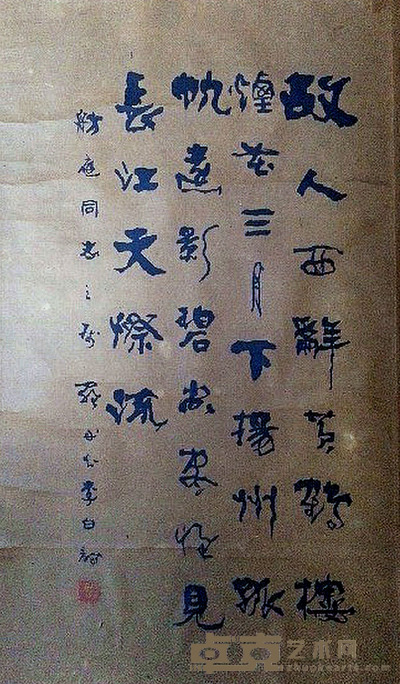 故人西辭黃鶴樓
煙花三月下揚州孤
帆遠影碧空盡惟見
長江天際流
庭同志之李白詩
卓克艺术网